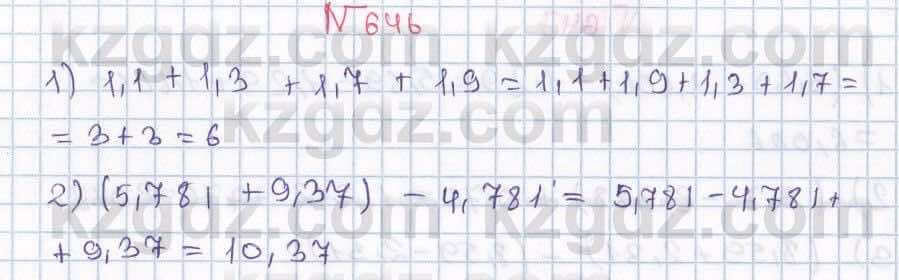 № 646
kzgdz.com
1) 1,1 + 1,3 + 1,7 + 1,9 = 1,1 + 1,9 + 1,3 + 1,7 =
= 3 + 3 = 6
kzgdz.com
2) (5,781 + 9,37) - 4,781 = 5,781 - 4,781 +
+ 9,37 = 10,37
kzgdz.com